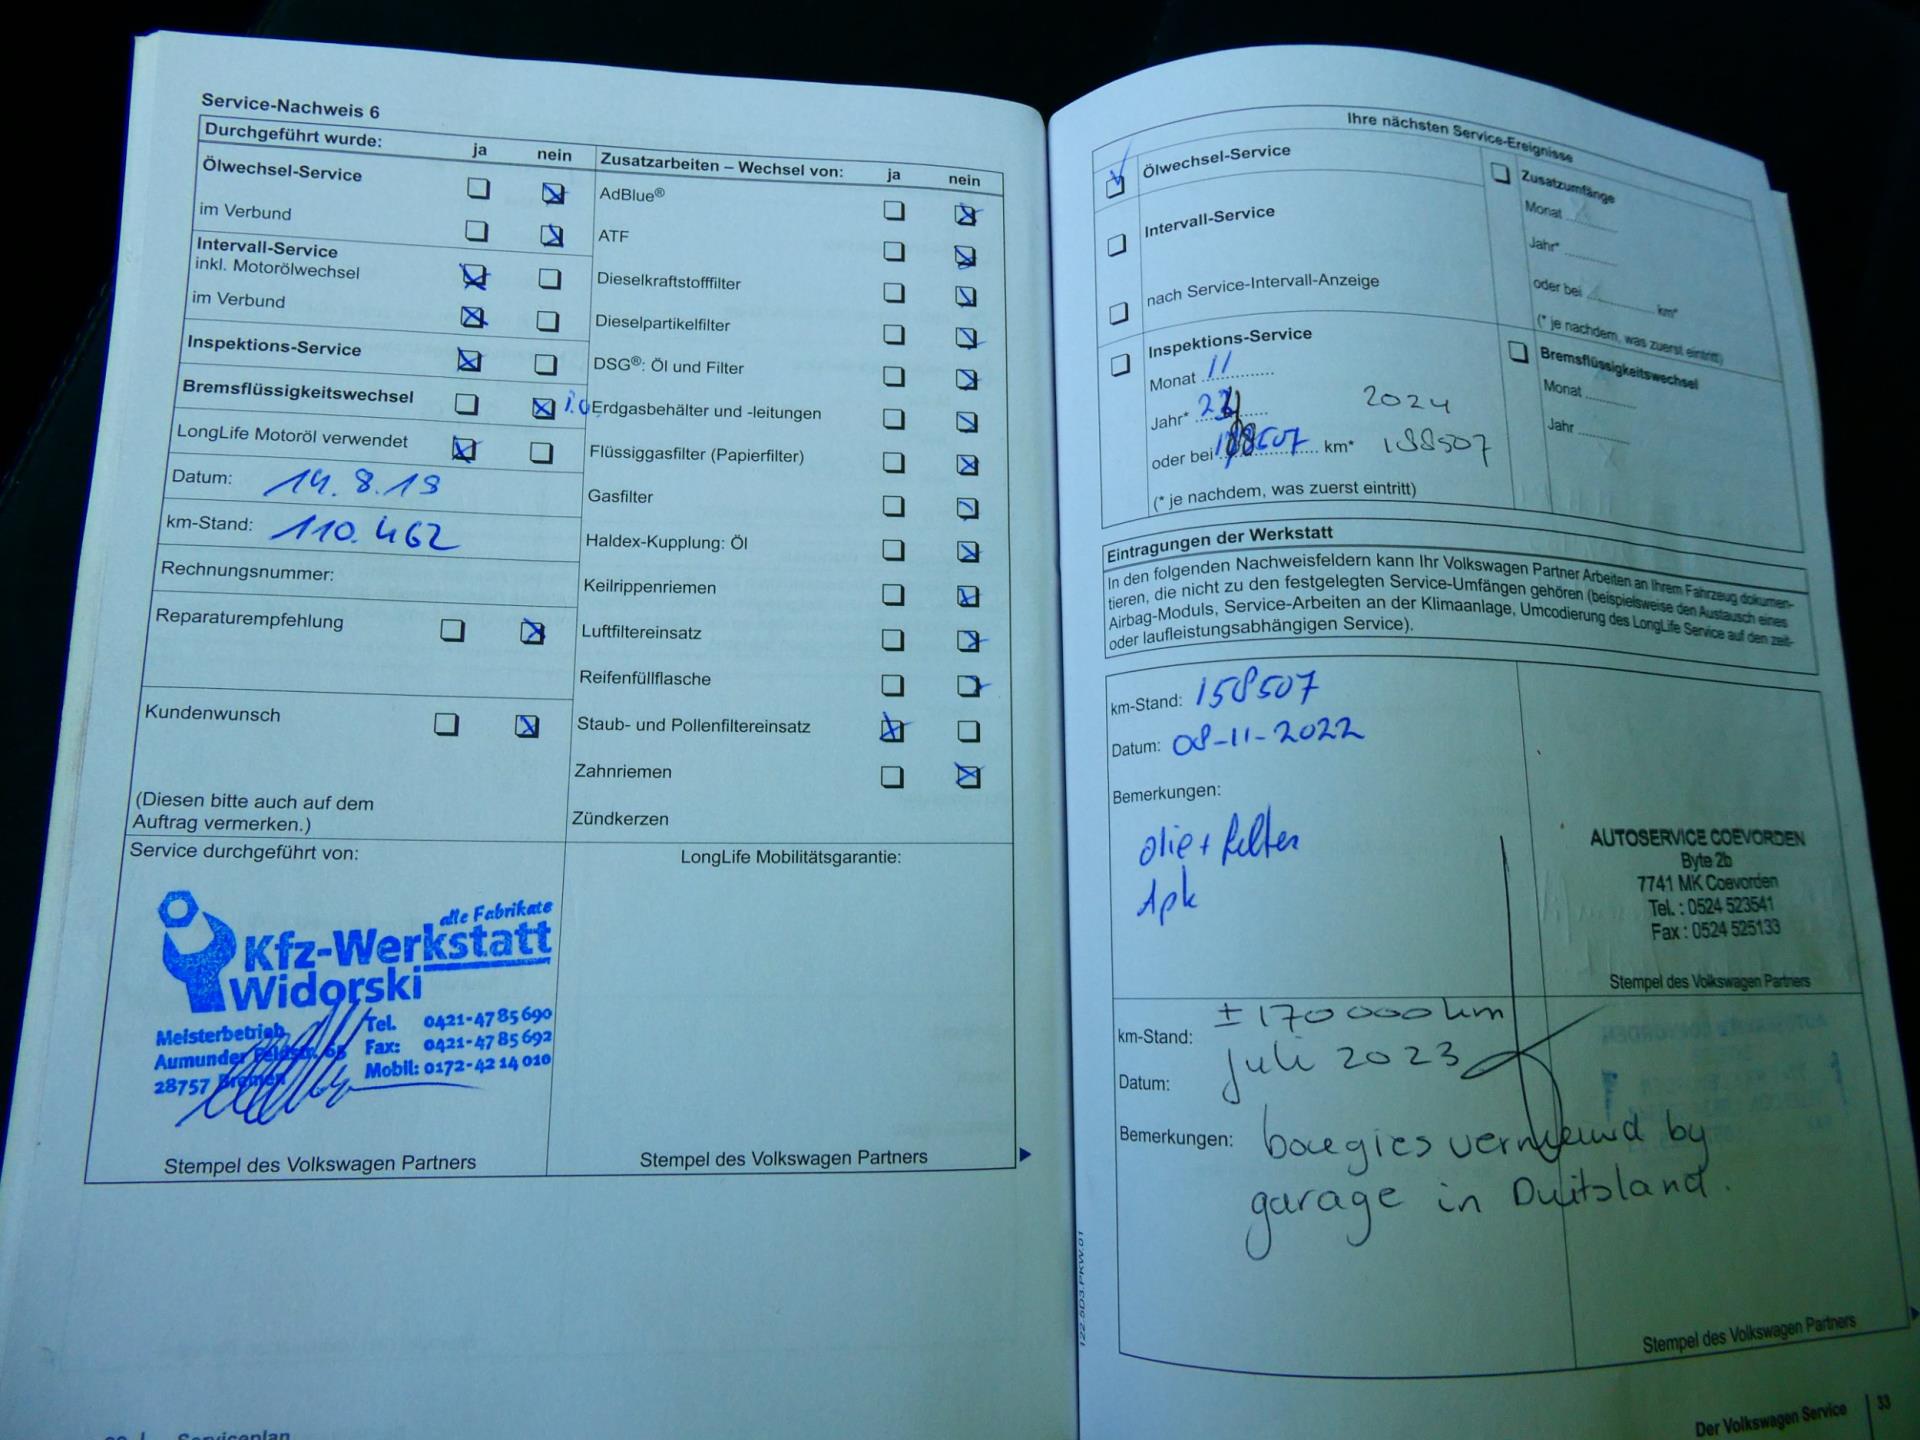 Service-Nachweis 6
Durchgeführt wurde: ja nein
Ölwechsel-Service
im Verbund
Intervall-Service
inkl. Motorölwechsel
im Verbund
Inspektions-Service
Bremsflüssigkeitswechsel
LongLife Motoröl verwendet
Datum: 14.8.19
km-Stand: 110.462
Rechnungsnummer:
Reparaturempfehlung
Kundenwunsch
(Diesen bitte auch auf dem
Auftrag vermerken.)
Zusatzarbeiten – Wechsel von: ja nein
AdBlue®
ATF
Dieselkraftstofffilter
Dieselpartikelfilter
DSG®: Öl und Filter
Erdgasbehälter und -leitungen
Flüssiggasfilter (Papierfilter)
Gasfilter
Haldex-Kupplung: Öl
Keilrippenriemen
Luftfiltereinsatz
Reifenfüllflasche
Staub- und Pollenfiltereinsatz
Zahnriemen
Zündkerzen
Service durchgeführt von:
alle Fabrikate
Kfz-Werkstatt
Widorski
Meisterbetrieb
Aumunder Feldstr. 65
28757 Bremen
Tel. 0421-47 85 690
Fax: 0421-47 85 692
Mobil: 0172-42 14 010
Stempel des Volkswagen Partners
LongLife Mobilitätsgarantie:
Stempel des Volkswagen Partners
Serviceplan
Ihre nächsten Service-Ereignisse
Ölwechsel-Service
Intervall-Service
nach Service-Intervall-Anzeige
Inspektions-Service
Monat 11
Jahr* 2024
oder bei km* 188507
(* je nachdem, was zuerst eintritt)
Zusatzumfänge
Monat
Jahr*
oder bei km*
(* je nachdem, was zuerst eintritt)
Bremsflüssigkeitswechsel
Monat
Jahr
Eintragungen der Werkstatt
In den folgenden Nachweisfeldern kann Ihr Volkswagen Partner Arbeiten an Ihrem Fahrzeug dokumen-
tieren, die nicht zu den festgelegten Service-Umfängen gehören (beispielsweise den Austausch eines
Airbag-Moduls, Service-Arbeiten an der Klimaanlage, Umcodierung des LongLife Service auf den zeit-
oder laufleistungsabhängigen Service).
km-Stand: 158507
Datum: 08-11-2022
Bemerkungen:
olie + filter
Apk
AUTOSERVICE COEVORDEN
Byte 2b
7741 MK Coevorden
Tel. : 0524 523541
Fax : 0524 525133
Stempel des Volkswagen Partners
km-Stand: ± 170 000 km
Datum: juli 2023
Bemerkungen: bougies vernieuwd by
garage in Duitsland.
Stempel des Volkswagen Partners
122.5D3.PKW.01
Der Volkswagen Service 33